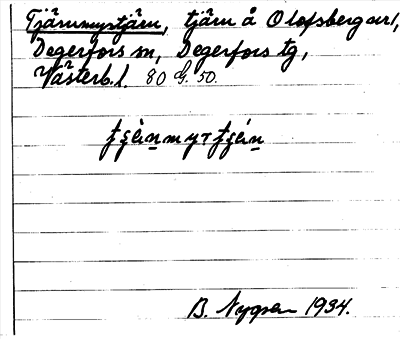 Tjärnmyrtjärn, tjärn å Olofsberg avs/,
Degerfors sn, Degerfors tg,
Västerb. l. 80 G. 50.
B. Nygren 1934.